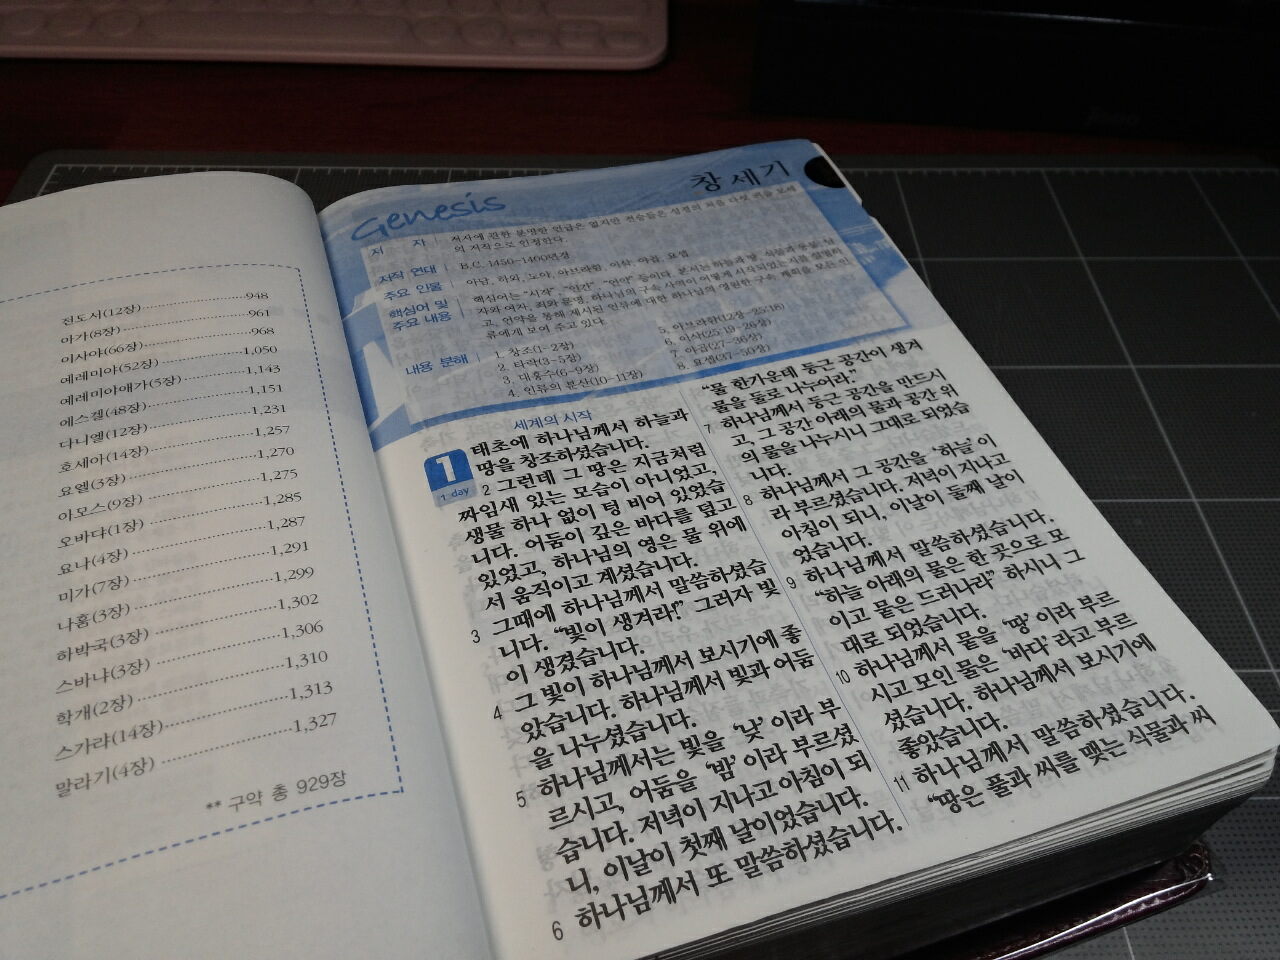 전도서(12장) 948
아가(8장) 961
이사야(66장) 968
예레미야(52장) 1,050
예레미야애가(5장) 1,143
에스겔(48장) 1,151
다니엘(12장) 1,231
호세아(14장) 1,257
요엘(3장) 1,270
아모스(9장) 1,275
오바댜(1장) 1,285
요나(4장) 1,287
미가(7장) 1,291
나훔(3장) 1,299
하박국(3장) 1,302
스바냐(3장) 1,306
학개(2장) 1,310
스가랴(14장) 1,313
말라기(4장) 1,327
** 구약 총 929장
Genesis 창세기
저 자 저자에 관한 분명한 언급은 없지만 전승들은 성경의 처음 다섯 권을 모세
의 저작으로 인정한다.
저작 연대 B.C. 1450-1400년경
주요 인물 아담, 하와, 노아, 아브라함, 이삭, 야곱, 요셉
핵심어 및 핵심어는 "시작", "인간", "언약" 등이다. 본서는 하늘과 땅, 식물과 동물, 남
주요 내용 자와 여자, 죄와 문명, 하나님의 구속 사역이 어떻게 시작되었는지를 설명하
고, 언약을 통해 제시된 인류에 대한 하나님의 영원한 구속 계획을 모든 인
류에게 보여 주고 있다.
내용 분해 1. 창조(1-2장)
2. 타락(3-5장)
3. 대홍수(6-9장)
4. 인류의 분산(10-11장)
5. 아브라함(12장-25:18)
6. 이삭(25:19-26장)
7. 야곱(27-36장)
8. 요셉(37-50장)
세계의 시작
1 태초에 하나님께서 하늘과
1 day 땅을 창조하셨습니다.
2 그런데 그 땅은 지금처럼
짜임새 있는 모습이 아니었고,
생물 하나 없이 텅 비어 있었습
니다. 어둠이 깊은 바다를 덮고
있었고, 하나님의 영은 물 위에
서 움직이고 계셨습니다.
3 그때에 하나님께서 말씀하셨습
니다. "빛이 생겨라!" 그러자 빛
이 생겼습니다.
4 그 빛이 하나님께서 보시기에 좋
았습니다. 하나님께서 빛과 어둠
을 나누셨습니다.
5 하나님께서는 빛을 '낮'이라 부
르시고, 어둠을 '밤'이라 부르셨
습니다. 저녁이 지나고 아침이 되
니, 이날이 첫째 날이었습니다.
6 하나님께서 또 말씀하셨습니다.
"물 한가운데 둥근 공간이 생겨
물을 둘로 나누어라."
7 하나님께서 둥근 공간을 만드시
고, 그 공간 아래의 물과 공간 위
의 물을 나누시니 그대로 되었습
니다.
8 하나님께서 그 공간을 '하늘'이
라 부르셨습니다. 저녁이 지나고
아침이 되니, 이날이 둘째 날이
었습니다.
9 하나님께서 말씀하셨습니다.
"하늘 아래의 물은 한 곳으로 모
이고 뭍은 드러나라" 하시니 그
대로 되었습니다.
10 하나님께서 뭍을 '땅'이라 부르
시고 모인 물은 '바다'라고 부르
셨습니다. 하나님께서 보시기에
좋았습니다.
11 하나님께서 말씀하셨습니다.
"땅은 풀과 씨를 맺는 식물과 씨